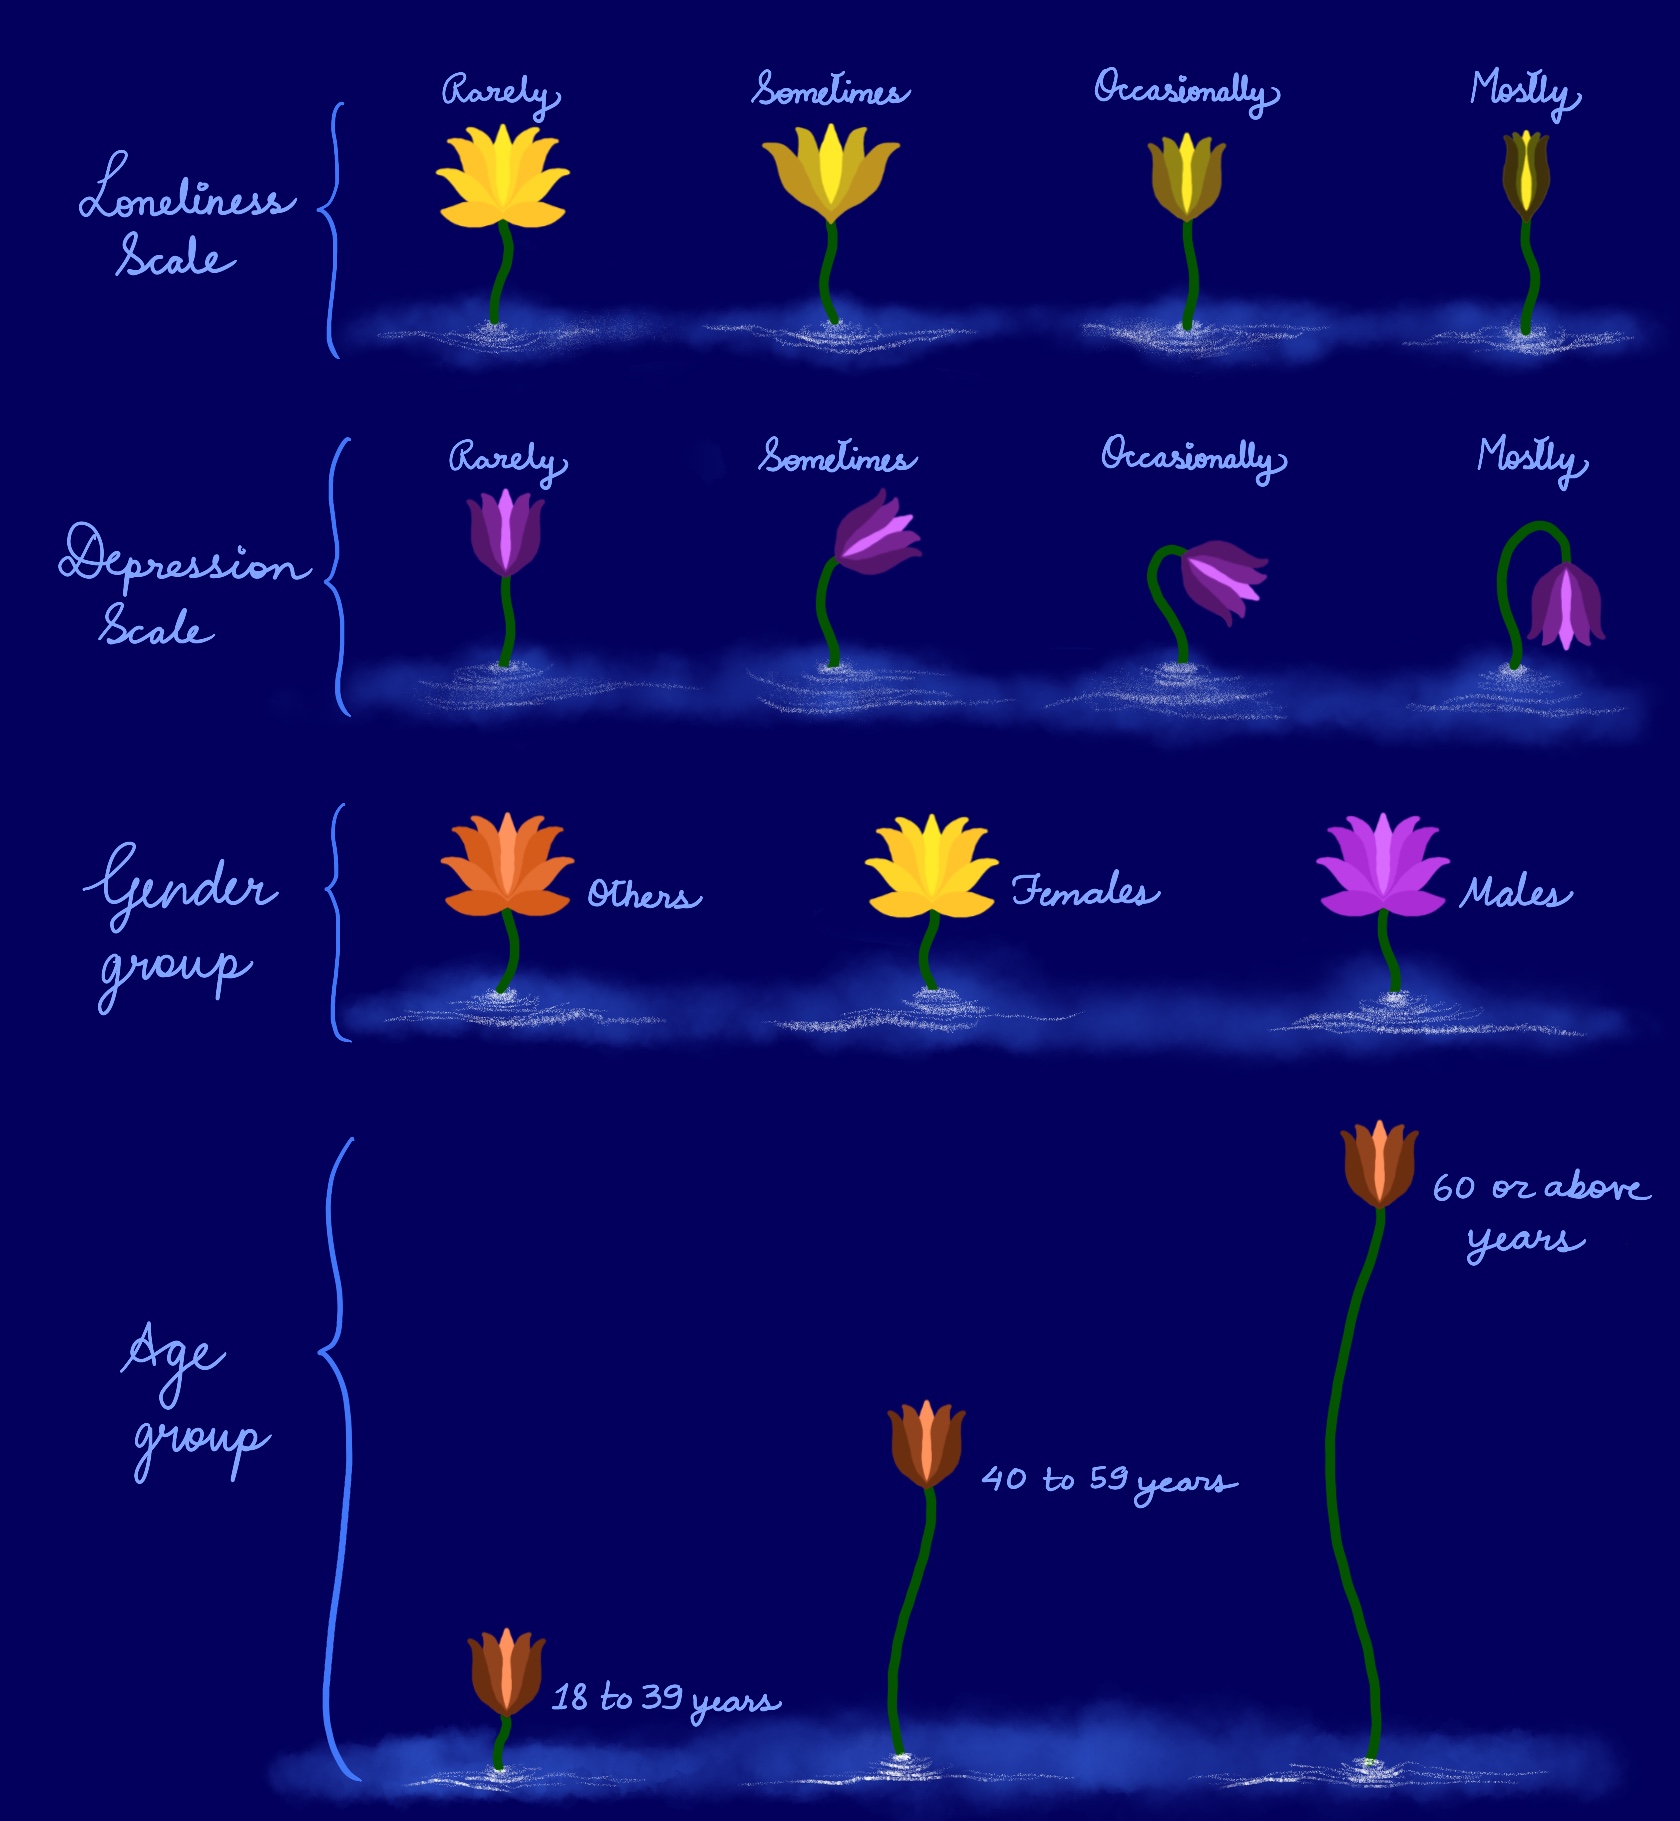 Rarely Sometimes Occasionally Mostly
Loneliness
Scale
Rarely Sometimes Occasionally Mostly
Depression
Scale
Gender
group
Others Females Males
60 or above
years
Age
group
40 to 59 years
18 to 39 years